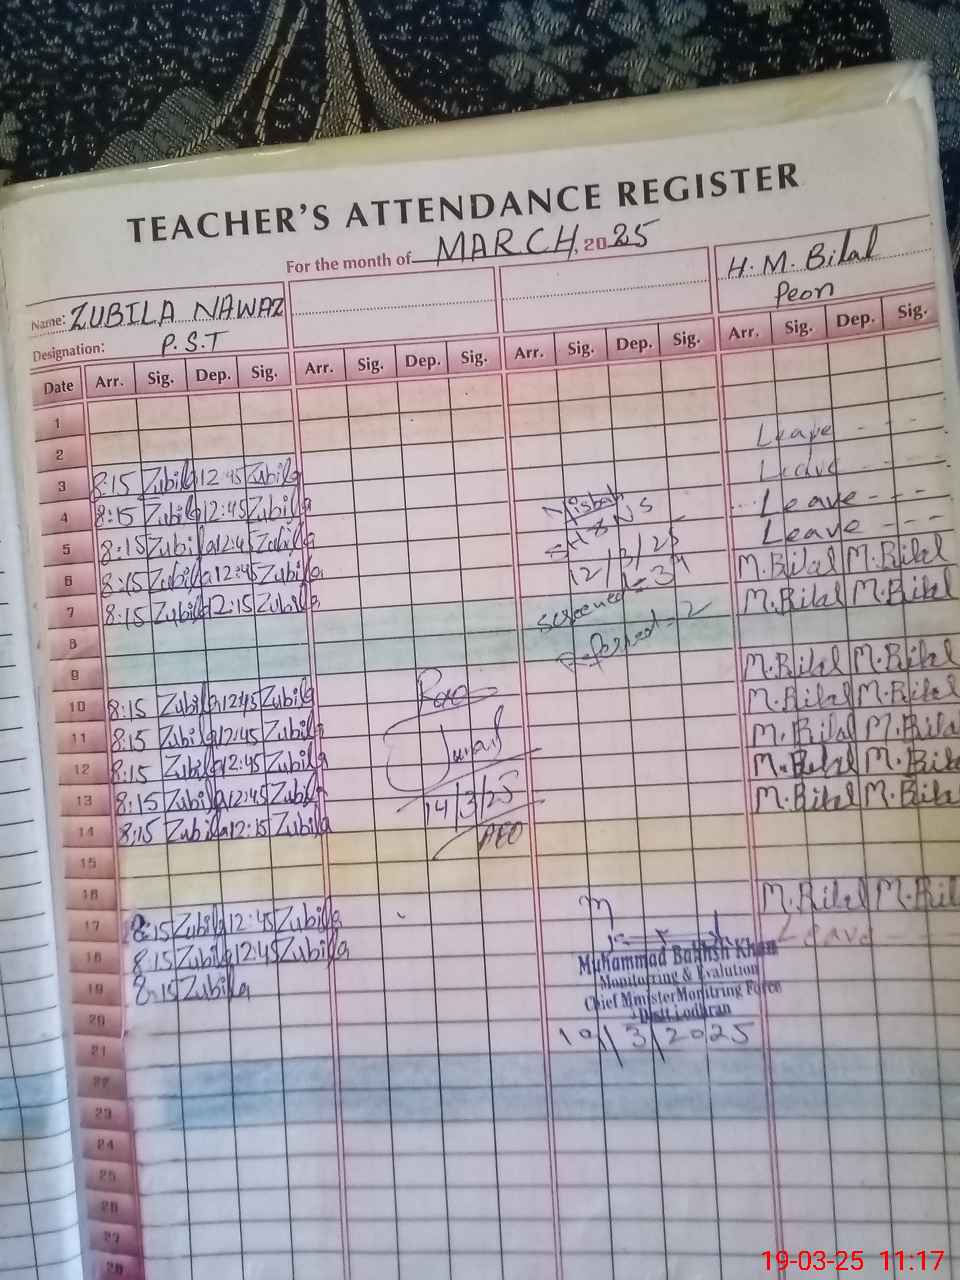 TEACHER'S ATTENDANCE REGISTER
For the month of MARCH, 2025
Name: ZUBILA NAWAZ
H. M. Bilal
Designation: P.S.T
Peon
Date Arr. Sig. Dep. Sig. Arr. Sig. Dep. Sig. Arr. Sig. Dep. Sig. Arr. Sig. Dep. Sig.
1
2
Leave - - -
3 8:15 Zubila 12:45 Zubila
Leave - - -
4 8:15 Zubila 12:45 Zubila
Leave - - -
5 8:15 Zubila 12:45 Zubila
Leave - - -
6 8:15 Zubila 12:45 Zubila
M.Bilal M.Bilal
7 8:15 Zubila 12:15 Zubila
M.Bilal M.Bilal
8
9
M.Bilal M.Bilal
10 8:15 Zubila 12:45 Zubila
M.Bilal M.Bilal
11 8:15 Zubila 12:45 Zubila
M.Bilal M.Bilal
12 8:15 Zubila 12:45 Zubila
M.Bilal M.Bilal
13 8:15 Zubila 12:45 Zubila
M.Bilal M.Bilal
14 8:15 Zubila 12:15 Zubila
15
16
M.Bilal M.Bil
17 8:15 Zubila 12:45 Zubila
Leave
18 8:15 Zubila 12:45 Zubila
19 8:15 Zubila
20
21
22
23
24
25
26
27
28
Misbah
12/3/25
Screened = 34
Referred = 2
Junaid
14/3/25
AEO
Muhammad Bakhsh Khan
Monitorring & Evalution
Chief Minister Monitring Force
Distt Lodhran
19/3/2025
19-03-25 11:17